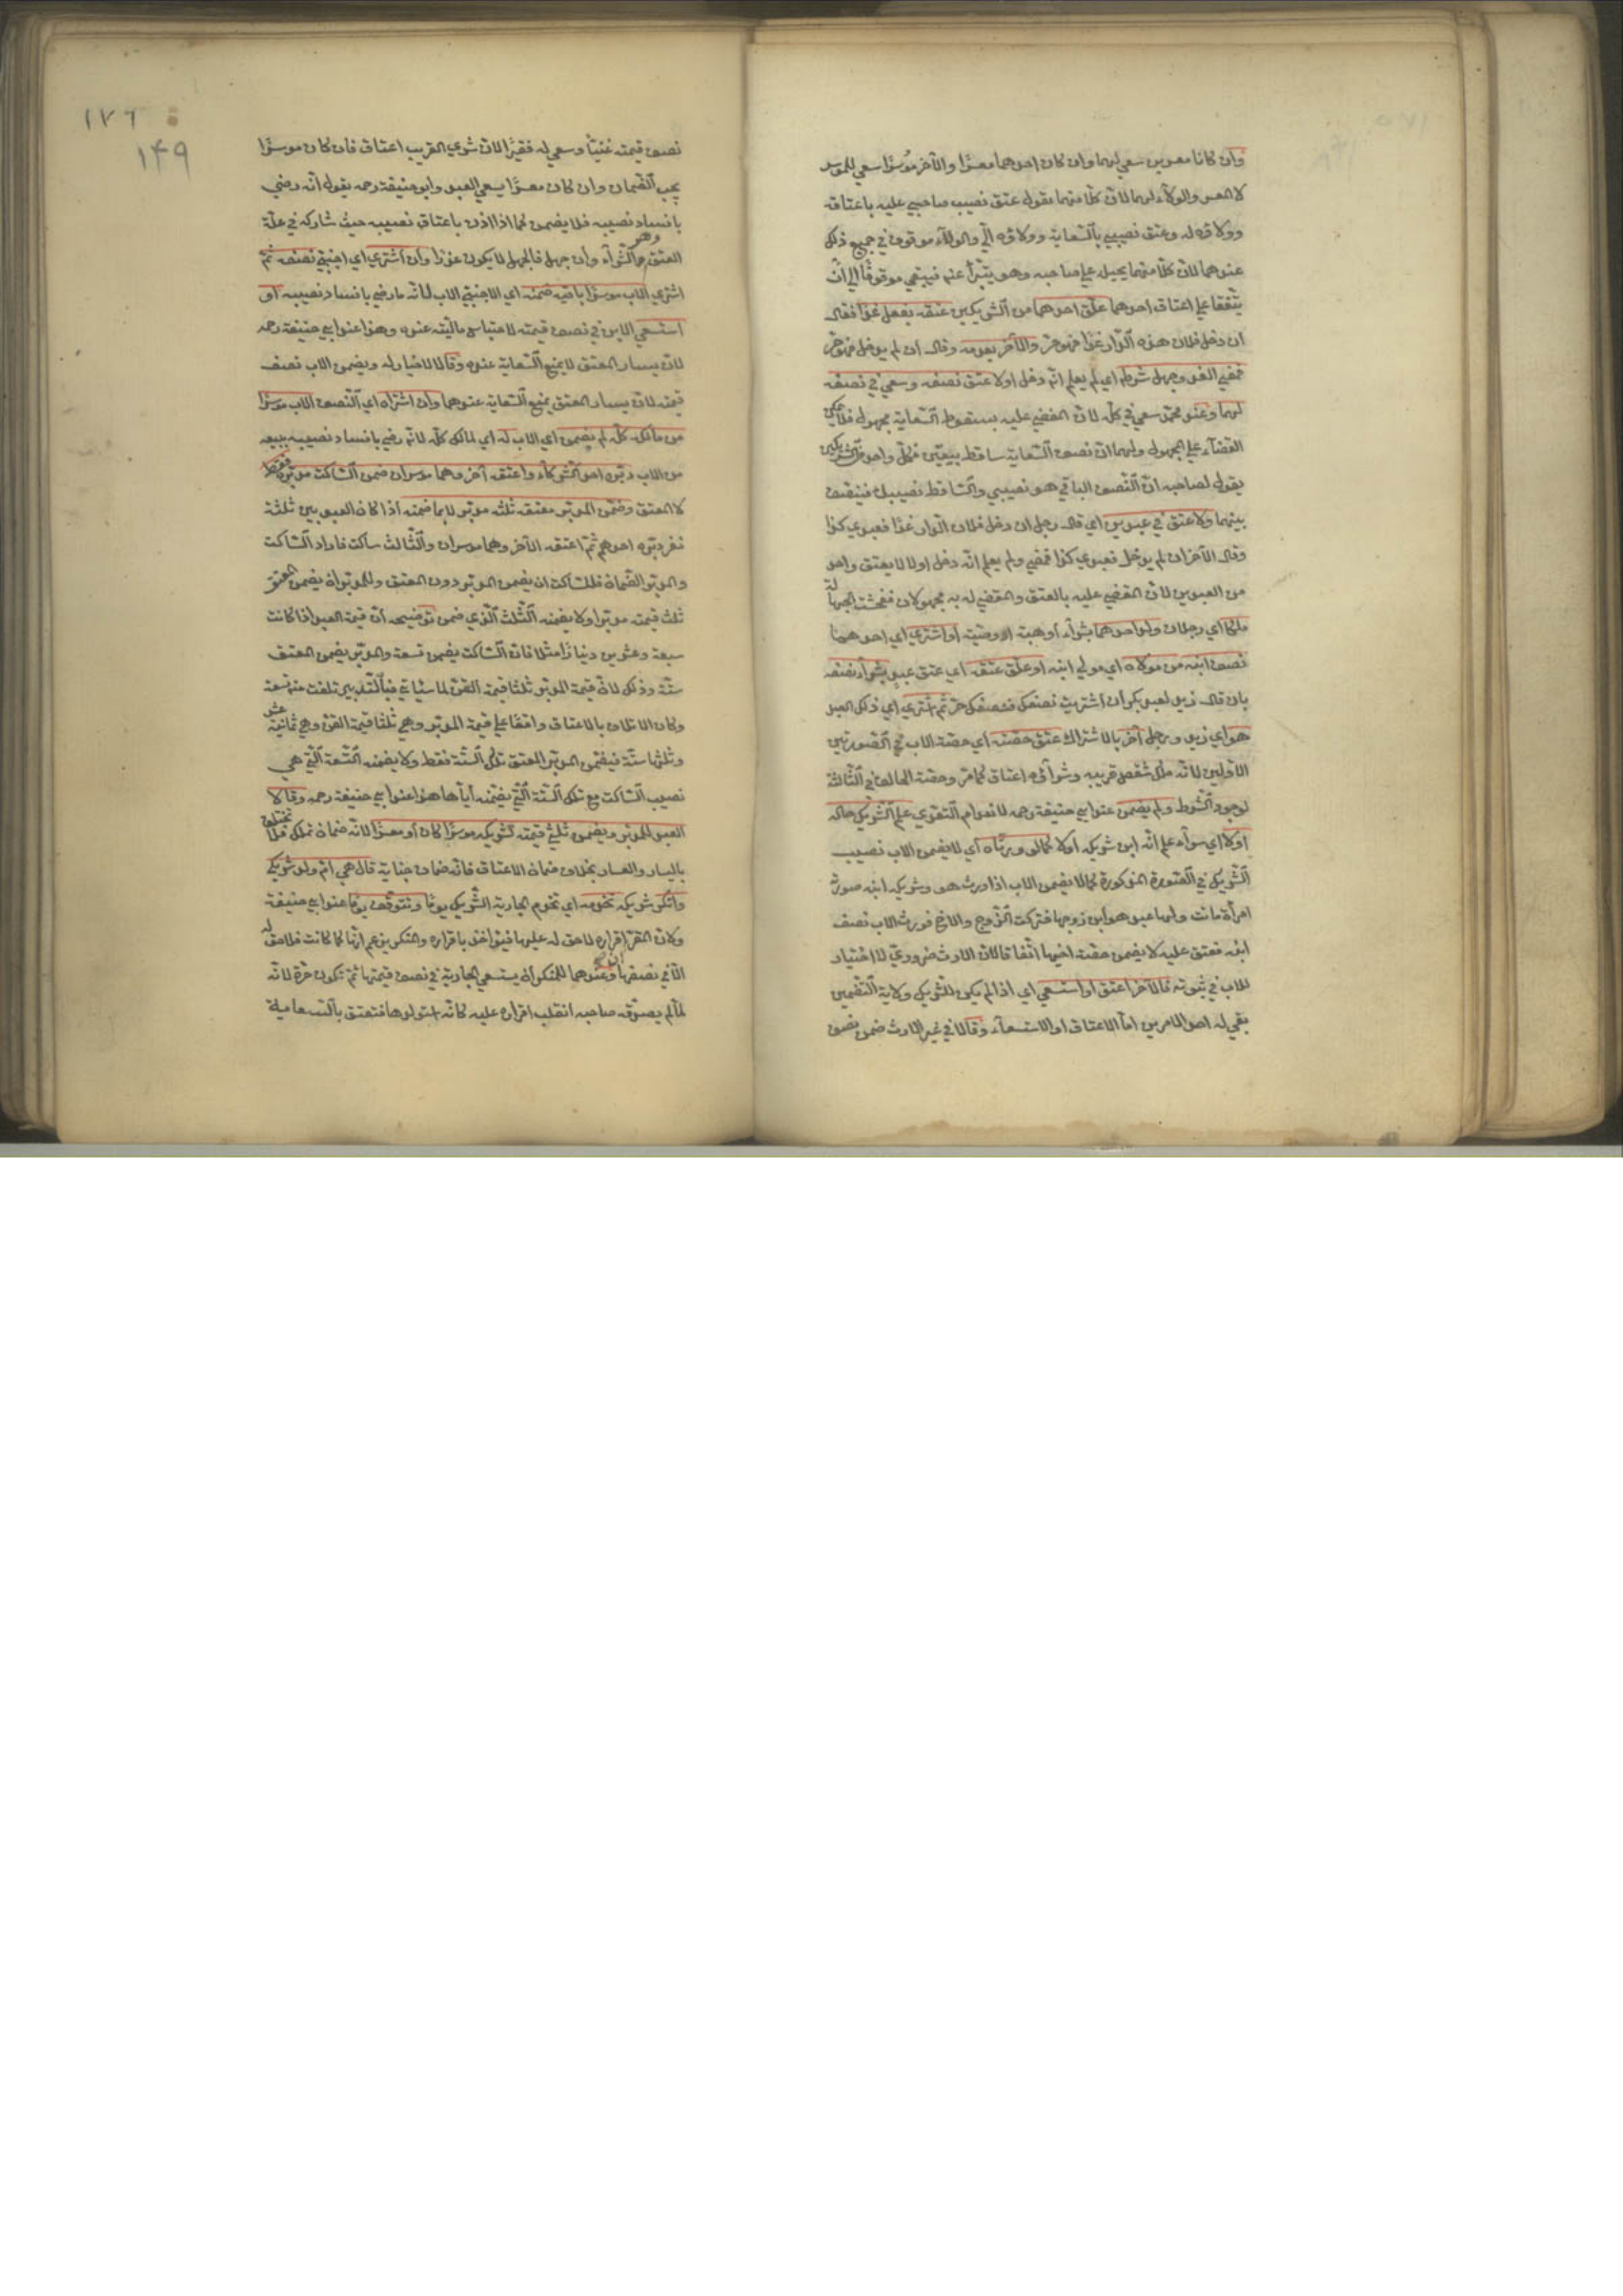 وان كانا معسرين سعى لهما وان كان احدهما معسرًا والآخر مُوسرًا سعى للموسر
لا المعسر والولاء لهما لان كلّا منهما يقول عتق نصيب صاحبي عليه باعتاقه
وولاؤه له وعتق نصيبي بالسّعاية وولاؤه الّي والولآء موقوف في جميع ذلك
عندهما لان كلّا منهما يحيل على صاحبه وهو يتبرّأ عنه فيبقى موقوفًا الى انْ
يتّفقا على اعتاق احدهما علّق احدهما من الشريكين عتقه بفعل غدًا فقال
ان دخل فلان هذه الّدار غدًا فهو حرّ والآخر بعدمه وقال ان لم يدخل فهو حرّ
فمضى الغد وجهل شرطه اي لم يعلم انّه دخل اولا عتق نصفه وسعى في نصفه
لهما وعند محمّد سعى في كلّه لان المقضي عليه بسقوط السّعاية مجهول فلا يمكن
القضآء على المجهول ولهما انّ نصف السّعاية ساقط بيقين فكلّ واحد من الشّريكين
يقول لصاحبه انّ النّصف الباقي هو نصيبي والسّاقط نصيبك فينصّف
بينهما ولا عتق في عبدين اي قال رجل ان دخل فلان الّدار غدًا فعبدي كذا
وقال الآخر ان لم يدخل فعبدي كذا فمضى ولم يعلم انّه دخل اولا لا يعتق واحد
من العبدين لان المقضي عليه بالعتق والمقضي له به مجهولان ففحشت الجهالة
ملكا اي رجلان ولد احدهما بشرآء او هبة او وصيّة او اشترى اي احدهما
نصف ابنه من مولاه اي مولى ابنه او علّق عتقه اي عتق عبد بشرآء نصفه
بان قال زيد لعبد بكر ان اشتريت نصفك فنصفك حرّ ثم اشترى اي ذلك العبد
هو اي زيد ورجل آخر بالاشتراك عتق حصّته اي حصّة الاب في الصّورتين
الاوليين لانّه ملك شقص قريبه وشرآؤه اعتاق كما مرّ وحصّة الحالف في الثّالثة
لوجود الشّرط ولم يضمن عند ابي حنيفة رحمه لانعدام التّعدّي علم الشّريك حاله
اولا اي سوآء علم انّه ابن شريكه اولا كما لو ورثاه اي لا يضمن الاب نصيب
الشّريك في الصّورة المذكورة كما لا يضمن الاب اذا ورث هو وشريكه ابنه صورته
امرأة ماتت ولها عبد هو ابن زوجها فتركت الزّوج والاخ فورث الاب نصف
ابنه فعتق عليه لا يضمن حصّة اخيها اتّفاقا لانّ الارث ضروريّ لا اختيار
للاب في ثبوته فالآخر اعتق او استسعى اي اذا لم يكن للشّريك ولاية التّضمين
بقي له احد الامرين امّا الاعتاق او الاستسعآء وقالا في غير الارث ضمن نصف
١٧٦
١٤٩
نصف قيمته غنيّا وسعى له فقيرًا لانّ شرى القريب اعتاق فان كان موسرًا
يجب الضّمان وان كان معسرًا يسعى العبد وابو حنيفة رحمه يقول انّه رضي
بافساد نصيبه فلا يضمن كما اذا اذن باعتاق نصيبه حيث شاركه في علّة
العتق وهو الشّرآء وان جهل فالجهل لا يكون عذرًا وان اشترى اي اجنبيّ نصفه ثمّ
اشترى الاب موسرًا باقيه ضمنه اي الاجنبيّ الاب لانّه ما رضي بافساد نصيبه او
استسعى الابن في نصف قيمته لاحتباس ماليّته عنده وهذا عند ابي حنيفة رحمه
لانّ يسار المعتق لا يمنع السّعاية عنده وقالا لا خيار له ويضمن الاب نصف
قيمته لانّ يسار المعتق يمنع السّعاية عندهما وان اشتراه اي النّصف الاب موسرًا
من مالك كلّه لم يضمن اي الاب له اي لمالك كلّه لانّه رضي بافساد نصيبه ببيعه
من الاب دبّره احد الشّركآء واعتقه آخر وهما موسران ضمن السّاكت مدبّره فقط
لا المعتق وضمّن المدبّر معتقه ثلثه مدبّرًا لا ما ضمنه اذا كان العبد بين ثلثة
نفر دبّره احدهم ثمّ اعتقه الآخر وهما موسران والثّالث ساكت فاراد السّاكت
والمدبّر الضّمان فللسّاكت ان يضمن المدبّر دون المعتق وللمدبّر ان يضمن المعتق
ثلث قيمته مدبّرا ولا يضمنه الثّلث الّذي ضمن توضيحه انّ قيمة العبد اذا كانت
سبعة وعشرين دينارًا مثلا فانّ السّاكت يضمن تسعة والمدبّر يضمن المعتق
ستّة وذلك لانّ قيمة المدبّر ثلثا قيمة القنّ لما سيأتي فبالتّدبير تلفت منه تسعة
وكان الاتلاف بالاعتاق واقعًا على قيمة المدبّر وهي ثلثا قيمة القنّ وهي ثمانية عشر
وثلثها ستّة فيضمن المدبّر المعتق تلك السّتّة فقط ولا يضمنه التّسعة الّتي هي
نصيب السّاكت مع تلك السّتّة الّتي يضمّنه ايّاها هذا عند ابي حنيفة رحمه وقالا
العبد للمدبّر ويضمن ثلثي قيمته لشريكه موسرًا كان او معسرًا لانّه ضمان تملّك فلا يختلف
باليسار والعسار بخلاف ضمان الاعتاق فانّه ضمان جناية قال هي امّ ولد شريكي
وانكر شريكه تخدمه اي تخدم الجارية الشّريك يومًا وتتوقّف يومًا عند ابي حنيفة
ولانّ المقرّ اقراره لا حق له عليها فيؤاخذ باقراره والمنكر يزعم انّها كما كانت فلا حق له
الّا في نصفها وعندهما للمنكر ان يستسعى الجارية في نصف قيمتها ثمّ تكون حرّة لانّه
لمّا لم يصدّقه صاحبه انقلب اقراره عليه كانّه استولدها فتعتق بالسّعاية